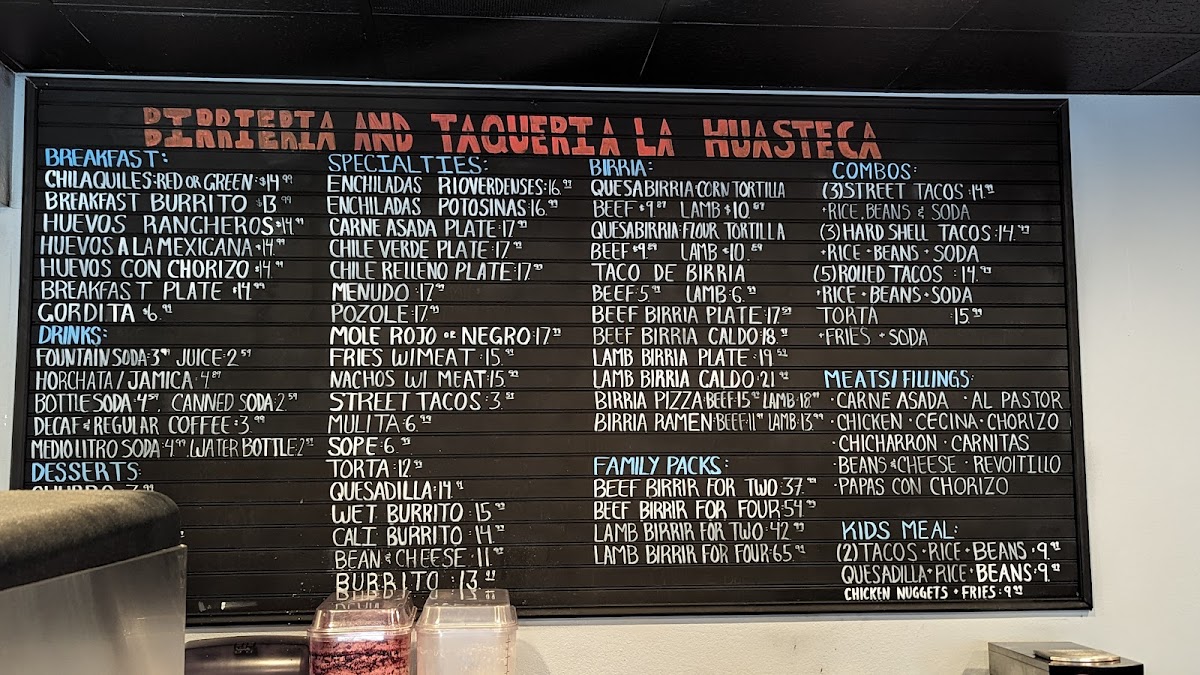 BIRRIERIA AND TAQUERIA LA HUASTECA
BREAKFAST:
CHILAQUILES:RED OR GREEN:$14.99
BREAKFAST BURRITO $13.99
HUEVOS RANCHEROS $14.99
HUEVOS A LA MEXICANA $14.99
HUEVOS CON CHORIZO $14.99
BREAKFAST PLATE $14.99
GORDITA $6.
DRINKS:
FOUNTAIN SODA:3 JUICE:2.59
HORCHATA/JAMICA:4.89
BOTTLE SODA:4.59, CANNED SODA:2.59
DECAF & REGULAR COFFEE:3.99
MEDIO LITRO SODA:4.99, WATER BOTTLE:2
DESSERTS:
CHURRO
SPECIALTIES:
ENCHILADAS RIOVERDENSES:16.99
ENCHILADAS POTOSINAS:16.99
CARNE ASADA PLATE:17.99
CHILE VERDE PLATE:17.99
CHILE RELLENO PLATE:17.99
MENUDO:17.99
POZOLE:17.99
MOLE ROJO OR NEGRO:17.99
FRIES W/MEAT:15.99
NACHOS W/ MEAT:15.99
STREET TACOS:3.
MULITA:6.99
SOPE:6.
TORTA:12.99
QUESADILLA:14.
WET BURRITO:15.99
CALI BURRITO:14.99
BEAN & CHEESE:11.99
BURRITO:13.
BIRRIA:
QUESABIRRIA:CORN TORTILLA
BEEF $9.89 LAMB $10.89
QUESABIRRIA:FLOUR TORTILLA
BEEF $9.89 LAMB $10.89
TACO DE BIRRIA
BEEF:5.99 LAMB:6.99
BEEF BIRRIA PLATE:17.59
BEEF BIRRIA CALDO:18.
LAMB BIRRIA PLATE:19.59
LAMB BIRRIA CALDO:21.99
BIRRIA PIZZA:BEEF:15.99 LAMB:18.99
BIRRIA RAMEN:BEEF:11.99 LAMB:13.99
FAMILY PACKS:
BEEF BIRRIR FOR TWO:37.99
BEEF BIRRIR FOR FOUR:54.99
LAMB BIRRIR FOR TWO:42.99
LAMB BIRRIR FOR FOUR:65.99
COMBOS:
(3)STREET TACOS:14.99
+RICE, BEANS & SODA
(3)HARD SHELL TACOS:14.99
+RICE+BEANS+SODA
(5)ROLLED TACOS:14.99
+RICE+BEANS+SODA
TORTA :15.99
+FRIES + SODA
MEATS/FILLINGS:
·CARNE ASADA ·AL PASTOR
·CHICKEN ·CECINA·CHORIZO
·CHICHARRON ·CARNITAS
·BEANS&CHEESE ·REVOITILLO
·PAPAS CON CHORIZO
KIDS MEAL:
(2)TACOS+RICE+BEANS:9.99
QUESADILLA+RICE+BEANS:9.99
CHICKEN NUGGETS + FRIES:9.99